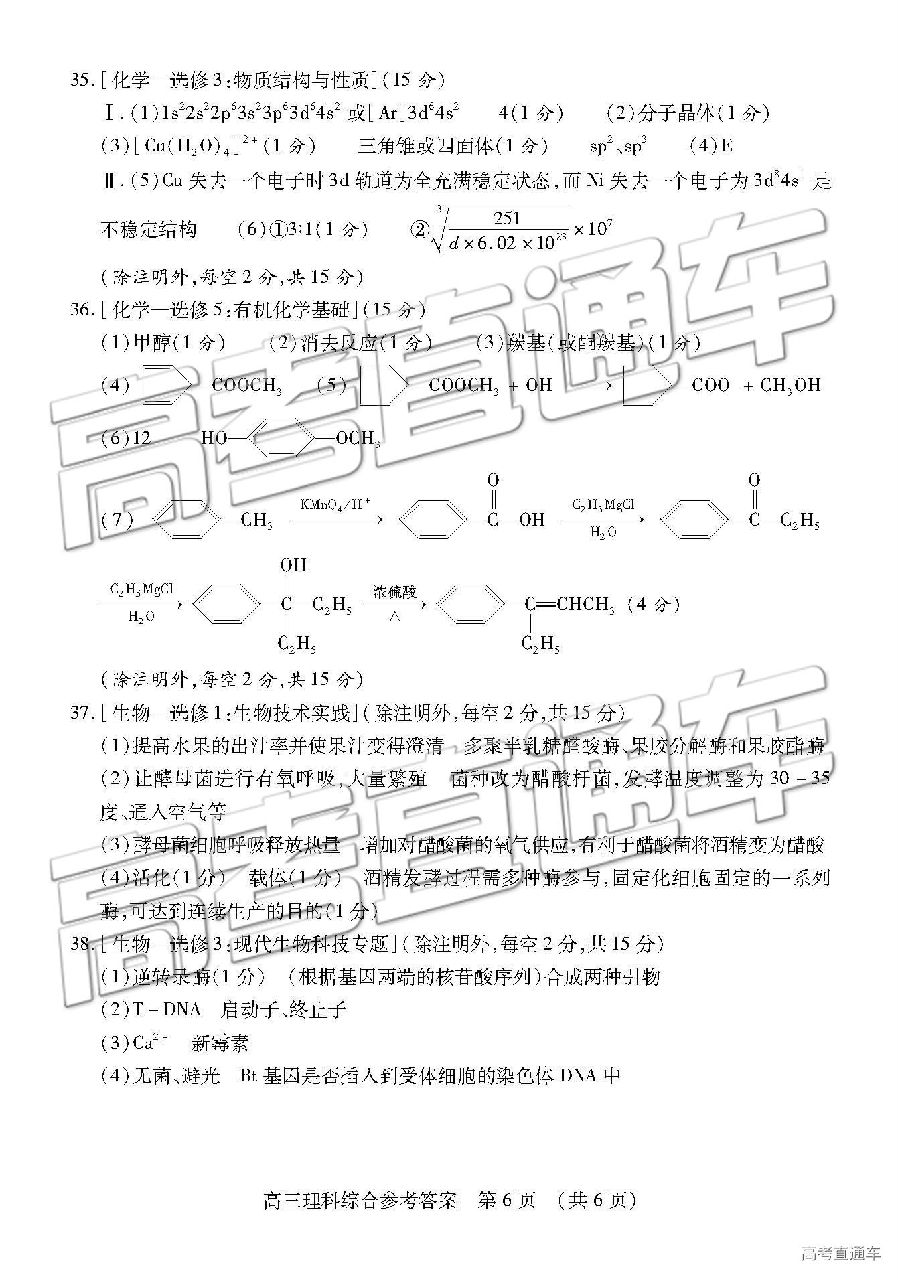 35.[化学—选修3:物质结构与性质](15分)
Ⅰ.(1)1s²2s²2p⁶3s²3p⁶3d⁶4s² 或[Ar]3d⁶4s² 4(1分) (2)分子晶体(1分)
(3)[Cu(H₂O)₄]²⁺(1分) 三角锥或四面体(1分) sp²、sp³ (4)E
Ⅱ.(5)Cu失去一个电子时3d轨道为全充满稳定状态,而Ni失去一个电子为3d⁸4s¹是
不稳定结构 (6)①3∶1(1分) ②∛(251/(d×6.02×10²³))×10⁷
(除注明外,每空2分,共15分)
36.[化学—选修5:有机化学基础](15分)
(1)甲醇(1分) (2)消去反应(1分) (3)羰基(或酮羰基)(1分)
(4) COOCH₃ (5) COOCH₃ + OH → COO + CH₃OH
(6)12 HO— —OCH₃
(7) CH₃ KMnO₄/H⁺ → O C OH C₂H₅MgCl H₂O → O C C₂H₅
C₂H₅MgCl H₂O → OH C C₂H₅ C₂H₅ 浓硫酸 △ → C=CHCH₃ C₂H₅ (4分)
(除注明外,每空2分,共15分)
37.[生物—选修1:生物技术实践](除注明外,每空2分,共15分)
(1)提高水果的出汁率并使果汁变得澄清 多聚半乳糖醛酸酶、果胶分解酶和果胶酯酶
(2)让酵母菌进行有氧呼吸,大量繁殖 菌种改为醋酸杆菌,发酵温度调整为30-35
度、通入空气等
(3)酵母菌细胞呼吸释放热量 增加对醋酸菌的氧气供应,有利于醋酸菌将酒精变为醋酸
(4)活化(1分) 载体(1分) 酒精发酵过程需多种酶参与,固定化细胞固定的一系列
酶,可达到连续生产的目的(1分)
38.[生物—选修3:现代生物科技专题](除注明外,每空2分,共15分)
(1)逆转录酶(1分) (根据基因两端的核苷酸序列)合成两种引物
(2)T-DNA 启动子、终止子
(3)Ca²⁺ 新霉素
(4)无菌、避光 Bt基因是否插入到受体细胞的染色体DNA中
高三理科综合参考答案 第6页 (共6页)
高考直通车
高考直通车
高考直通车